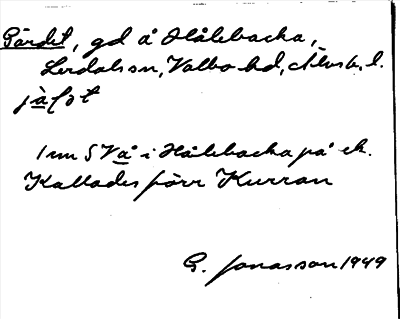 Gärdet, gd å Hålebacka,
Lerdals sn, Valbo hd, Älvsb. l.
jä̀ʃət
1 mm S V å i Hålebacka på ek.
Kallades förr Kurran
G. Jonasson 1949